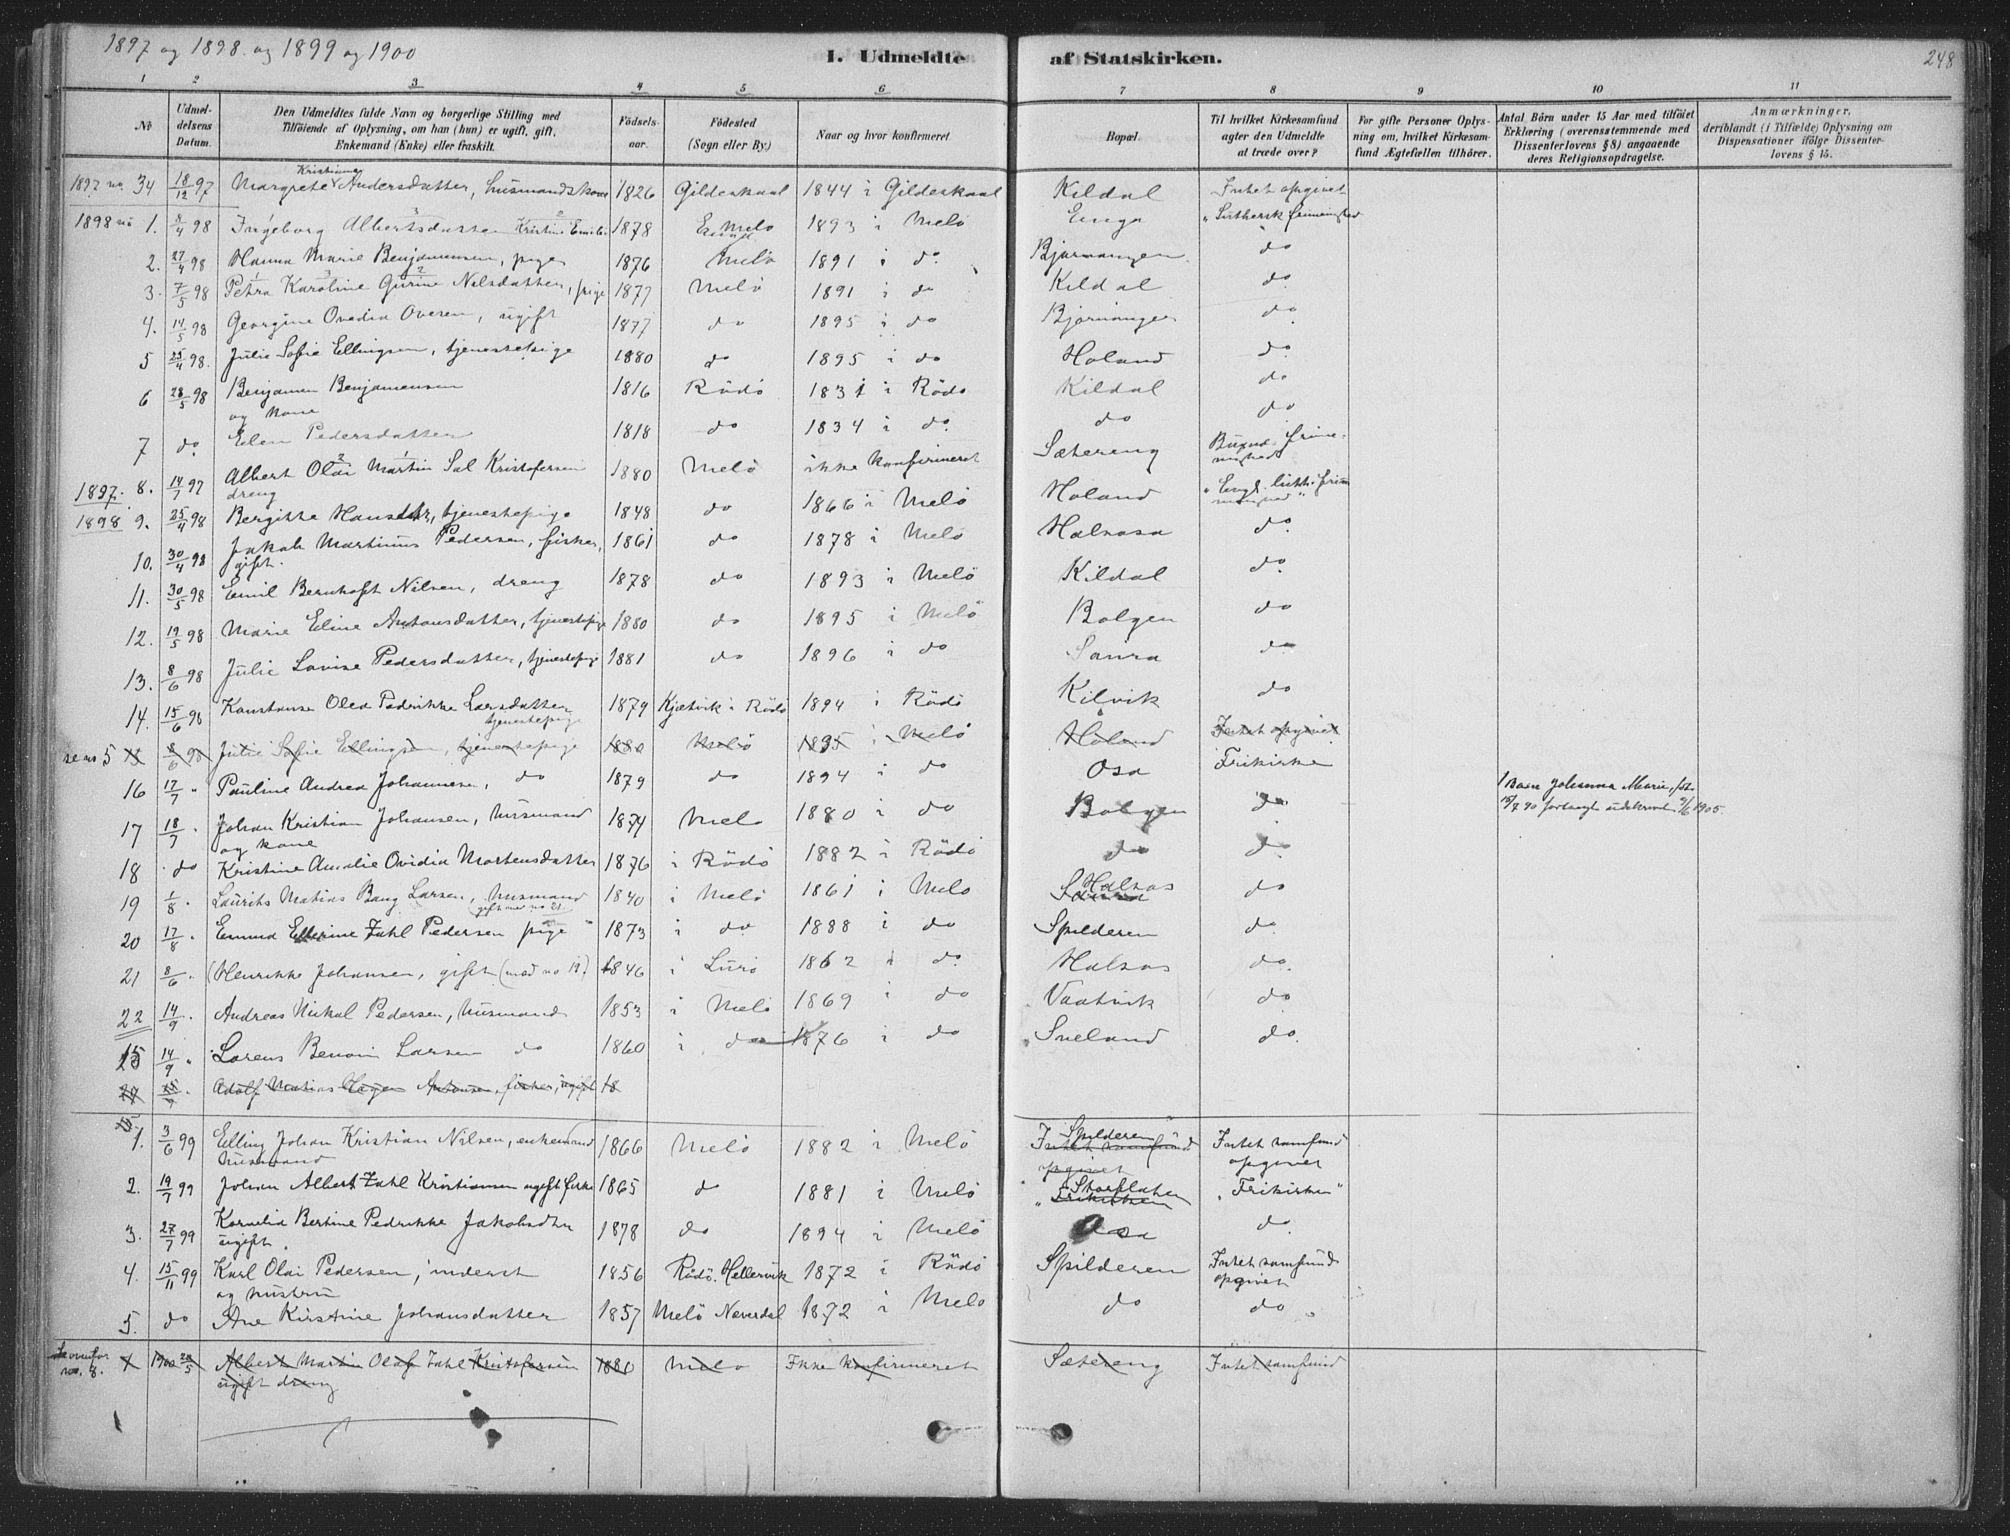 1897 og 1898 og 1899 og 1900
I. Udmeldte af Statskirken.
248
1 2 3 4 5 6 7 8 9 10 11
No
Udmeldelsens Datum.
Den Udmeldtes fulde Navn og borgerlige Stilling med Tilføiende af Oplysning, om han (hun) er ugift, gift, Enkemand (Enke) eller fraskilt.
Fødselsaar.
Fødested (Sogn eller By.)
Naar og hvor konfirmeret.
Bopæl.
Til hvilket Kirkesamfund agter den Udmeldte at træde over?
For gifte Personer Oplysning om, hvilket Kirkesamfund Ægtefællen tilhører.
Antal Börn under 15 Aar med tilföiet Erklæring (overensstemmende med Dissenterlovens § 8) angaaende deres Religionsopdragelse.
Anmærkninger, deriblandt (i Tilfælde) Oplysning om Dispensationer ifölge Dissenterlovens § 15.
1897 no 34 18/12 97 Margrete Kristianne Andersdatter, husmandskone 1826 Gildeskaal 1844 i Gildeskaal Kildal Intet opgivet
1898 no 1. 8/4 98 Ingeborg Albertsdatter Kristine Emelie 1878 Melö 1893 i Melö Enga "Luthersk frimenighed
2. 27/4 98 Hanna Marie Benjaminsen, pige 1876 Melö 1891 i do Bjærangen do
3. 7/5 98 Petra Karoline Gurine Nilsdatter, pige 1877 Melö 1891 i do Kildal do
4. 14/5 98 Georgine Ovedia Oversen, ugift 1877 do 1895 i do Bjærangen do
5 25/4 98. Julie Sofie Ellingsen, tjenestepige 1880 do 1895 i do Holand do
6 28/5 98 Benjamen Benjamensen 1816 Rödö 1831 i Rödö Kildal do
og kone
7 do. Elen Pedersdatter 1818 do 1834 i do. do do
1897. 8. 14/7 97 Albert Olai Martin Sal Kristofersen 1880 Melö ikke konfirmeret Sætereng
dreng
1898 9. 25/4 98 Bergitte Hansdtr, tjenestepige 1848 do 1866 i Melö Holand "Evgl. luth. frimenighed"
10. 30/4 98 Jakob Martinus Pedersen, fisker, 1861 do 1878 i Melö Halsosa do.
gift.
11. 30/5 98 Emil Bernhoft Nilsen, dreng 1878 do 1893 i Melö Kildal do.
12. 19/5 98 Marie Eline Antonsdatter, tjenestepige 1880 do 1895 i Melö Bolgen do
13. 8/6 98 Julie Lovise Pedersdatter, tjenestepige 1881 do 1896 i do Saura do
14. 15/6 98 Konstanse Olea Pedrikke Larsdatter 1879 Kjætvik i Rödö 1894 i Rödö Kilvik do
tjenestepige
se no 5 15 8/6 98 Julie Sofie Ellingsen, tjenestepige 1880 Melö 1895 i Melö Holand Intet opgivet
16 17/7 " Pauline Andrea Johannesen, do 1879 do 1894 i do Osa Frikirke
17 18/7 . Johan Kristian Johansen, husmand 1874 Melö 1880 i do Bolgen do 1 Barn Johanna Marie, f.
15/7 90 forlangt udskrevet 9/6 1905.
og kone
18 do Kristine Amalie Ovidia Mortensdatter 1876 i Rödö 1882 i Rödö do do
19 1/8 . Laurits Matias Bang Larsen, husmand 1840 i Melö 1861 i Melö Halsos do
gift med no 21
20 17/8 . Emma Ellerine Zahl Pedersen pige 1873 i do 1888 i do Spilderen do.
21 8/6 . (Henrikke Johansen, gift (med no 19) 1846 i Lurö 1862 i do Halsos do.
22 14/9 . Andreas Nikol Pedersen, husmand 1853 i Melö 1869 i do Vaatvik do
14/9 " Lorens Benoni Larsen do 1860 i do 1876 i do Sneland do.
Adolf Matias Hagen Antonsen, fisker, ugift 18
1. 3/6 99 Elling Johan Kristian Nilsen, enkemand 1866 Melö 1882 i Melö Spilderen Intet samfund
husmand Intet samfund opgivet opgivet
2. 19/7 99 Johan Albert Zahl Kristiansen ugift fisker 1865 do 1881 i Melö Storflaten "Frikirken" "Frikirken"
3. 27/7 99 Kornelia Bertine Pedrikke Jakobsdtr 1878 do 1894 i Melö Osa do.
ugift.
4. 15/11 99 Karl Olai Pedersen, inderst 1856 Rödö. Hellervik 1872 i Rödö Spilderen Intet samfund
og hustru opgivet
5. do Ane Kirstine Johansdatter 1857 Melö Neverdal 1872 i Melö do do
no. 8. 1 1900 28/5 Albert Martin Olaf Zahl Kristofersen 1880 Melö Ikke konfirmeret Sætereng Intet samfund
ugift dreng